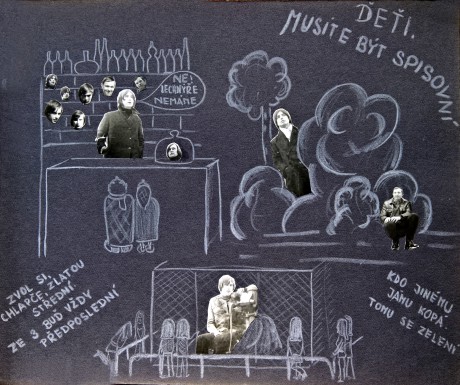 ĎEŤI,
MUSÍTE BÝT SPISOVNÍ
NE!
LECHNÝŘE
NEMÁME
ZVOL SI,
CHLAPČE, ZLATOU
STŘEDNÍ.
ZE 3 BUĎ VŽDY
PŘEDPOSLEDNÍ
KDO JINÉMU
JÁMU KOPÁ,
TOMU SE ZELENÍ